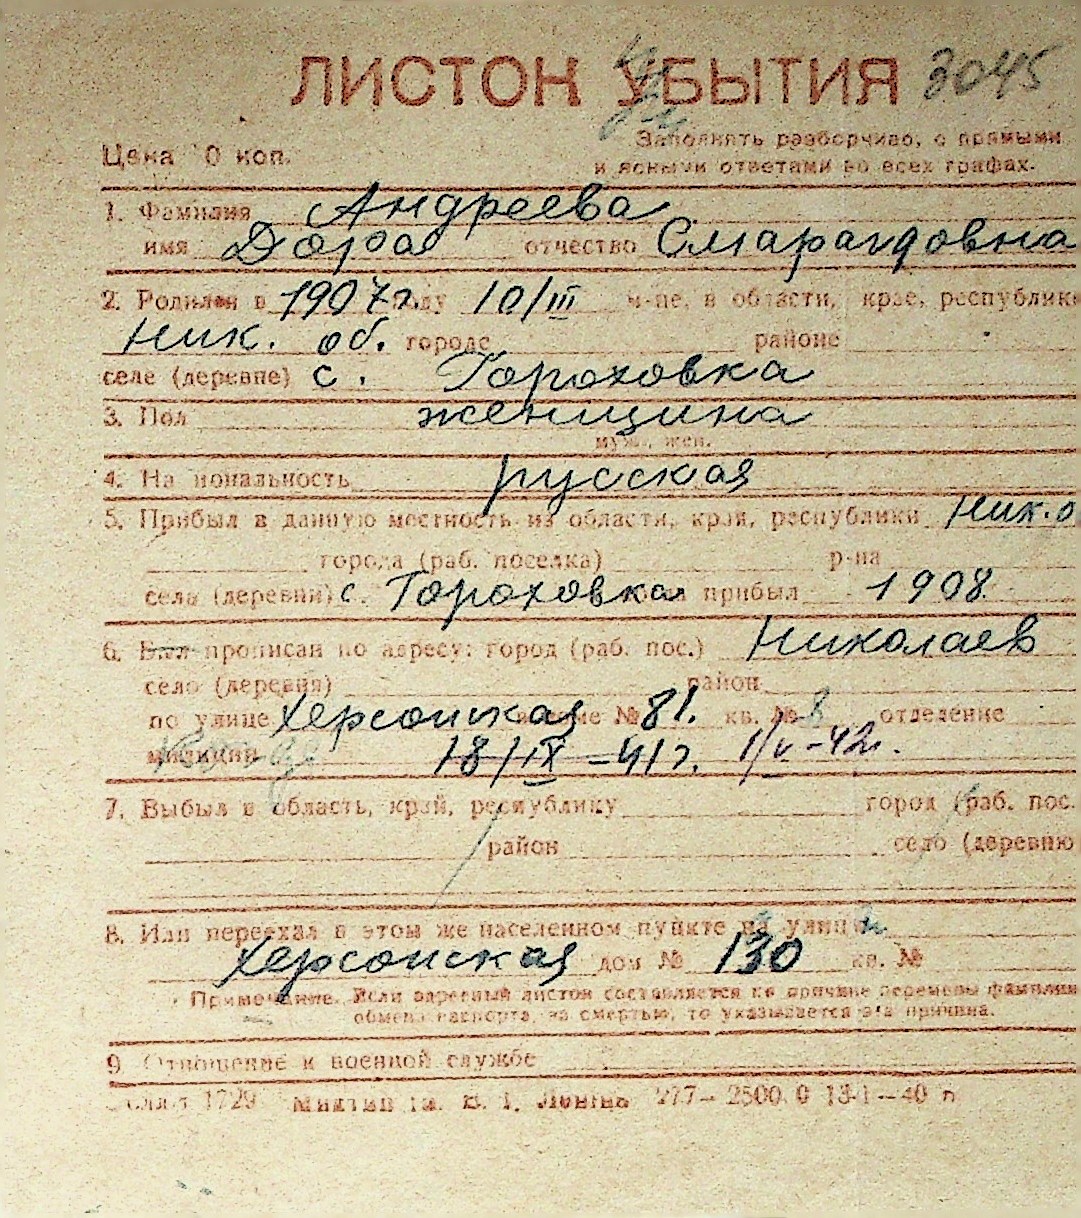 ЛИСТОК УБЫТИЯ 3045
Цена 10 коп.
Заполнять разборчиво, с прямыми
и ясными ответами во всех графах.
1. Фамилия Андреева
имя Дора отчество Смарагдовна
2. Родилен в 1907 г. году 10/III м-це, в области, крае, республике
Ник. об. городе районе
селе (деревне) с. Гороховка
3. Пол женщина
муж., жен.
4. Национальность русская
5. Прибыл в данную местность из области, края, республики Ник. о
города (раб. поселка) р-на
села (деревни) с. Гороховка прибыл 1908.
6. Был прописан по адресу: город (раб. пос.) Николаев
село (деревня) район
по улице Херсонская № 81. кв. № 8 отделение
милиции 18/IX -41 г. 1/V -42 г.
7. Выбыл в область, край, республику город (раб. пос.
район село (деревню
8. Или переехал в этом же населенном пункте на улицу
Херсонская дом № 130 кв. №
Примечание. Если адресный листок составляется по причине перемены фамилии
обмена паспорта, за смертью, то указывается эта причина.
9. Отношение к военной службе
1729 В. І. Леніна 277— 2500.0 13-І—40 п